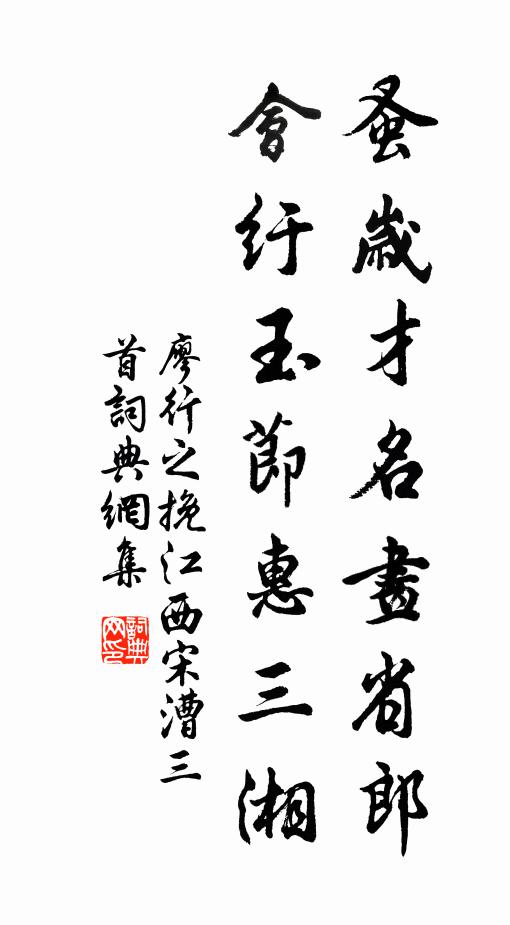 蚤歲才名畫省郎
會紆玉節惠三湘
廖行之挽江西宋漕三
首詞典網集
詞典網印